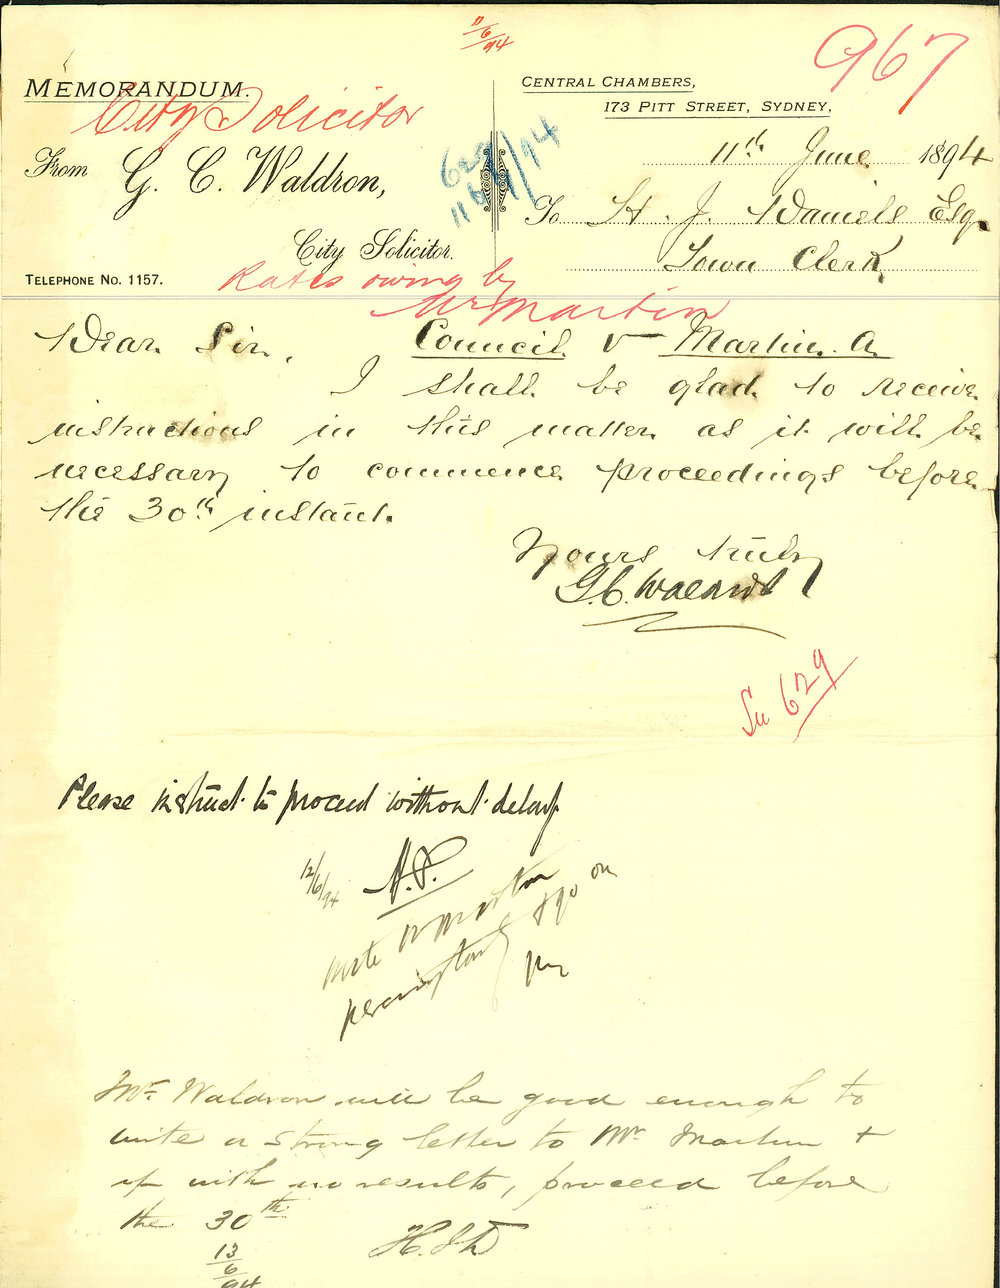 11/6/94
967
MEMORANDUM.
City Solicitor
From G. C. Waldron,
City Solicitor.
TELEPHONE NO. 1157.
629
11/6/94
CENTRAL CHAMBERS,
173 PITT STREET, SYDNEY,
11th June 1894
To H. J. Daniels Esq.
Town Clerk
Rates owing by
Mr Martin
Dear Sir,
Council v Martin. A
I shall be glad to receive
instructions in this matter as it will be
necessary to commence proceedings before
the 30th instant.
Yours truly
G. C. Waldron
629
Please instruct to proceed without delay
12/6/94
write Martin
& go on
Mr. Waldron will be good enough to
write a strong letter to Mr Martin +
if with no results, proceed before
the 30th
13/6/94
H.J.D